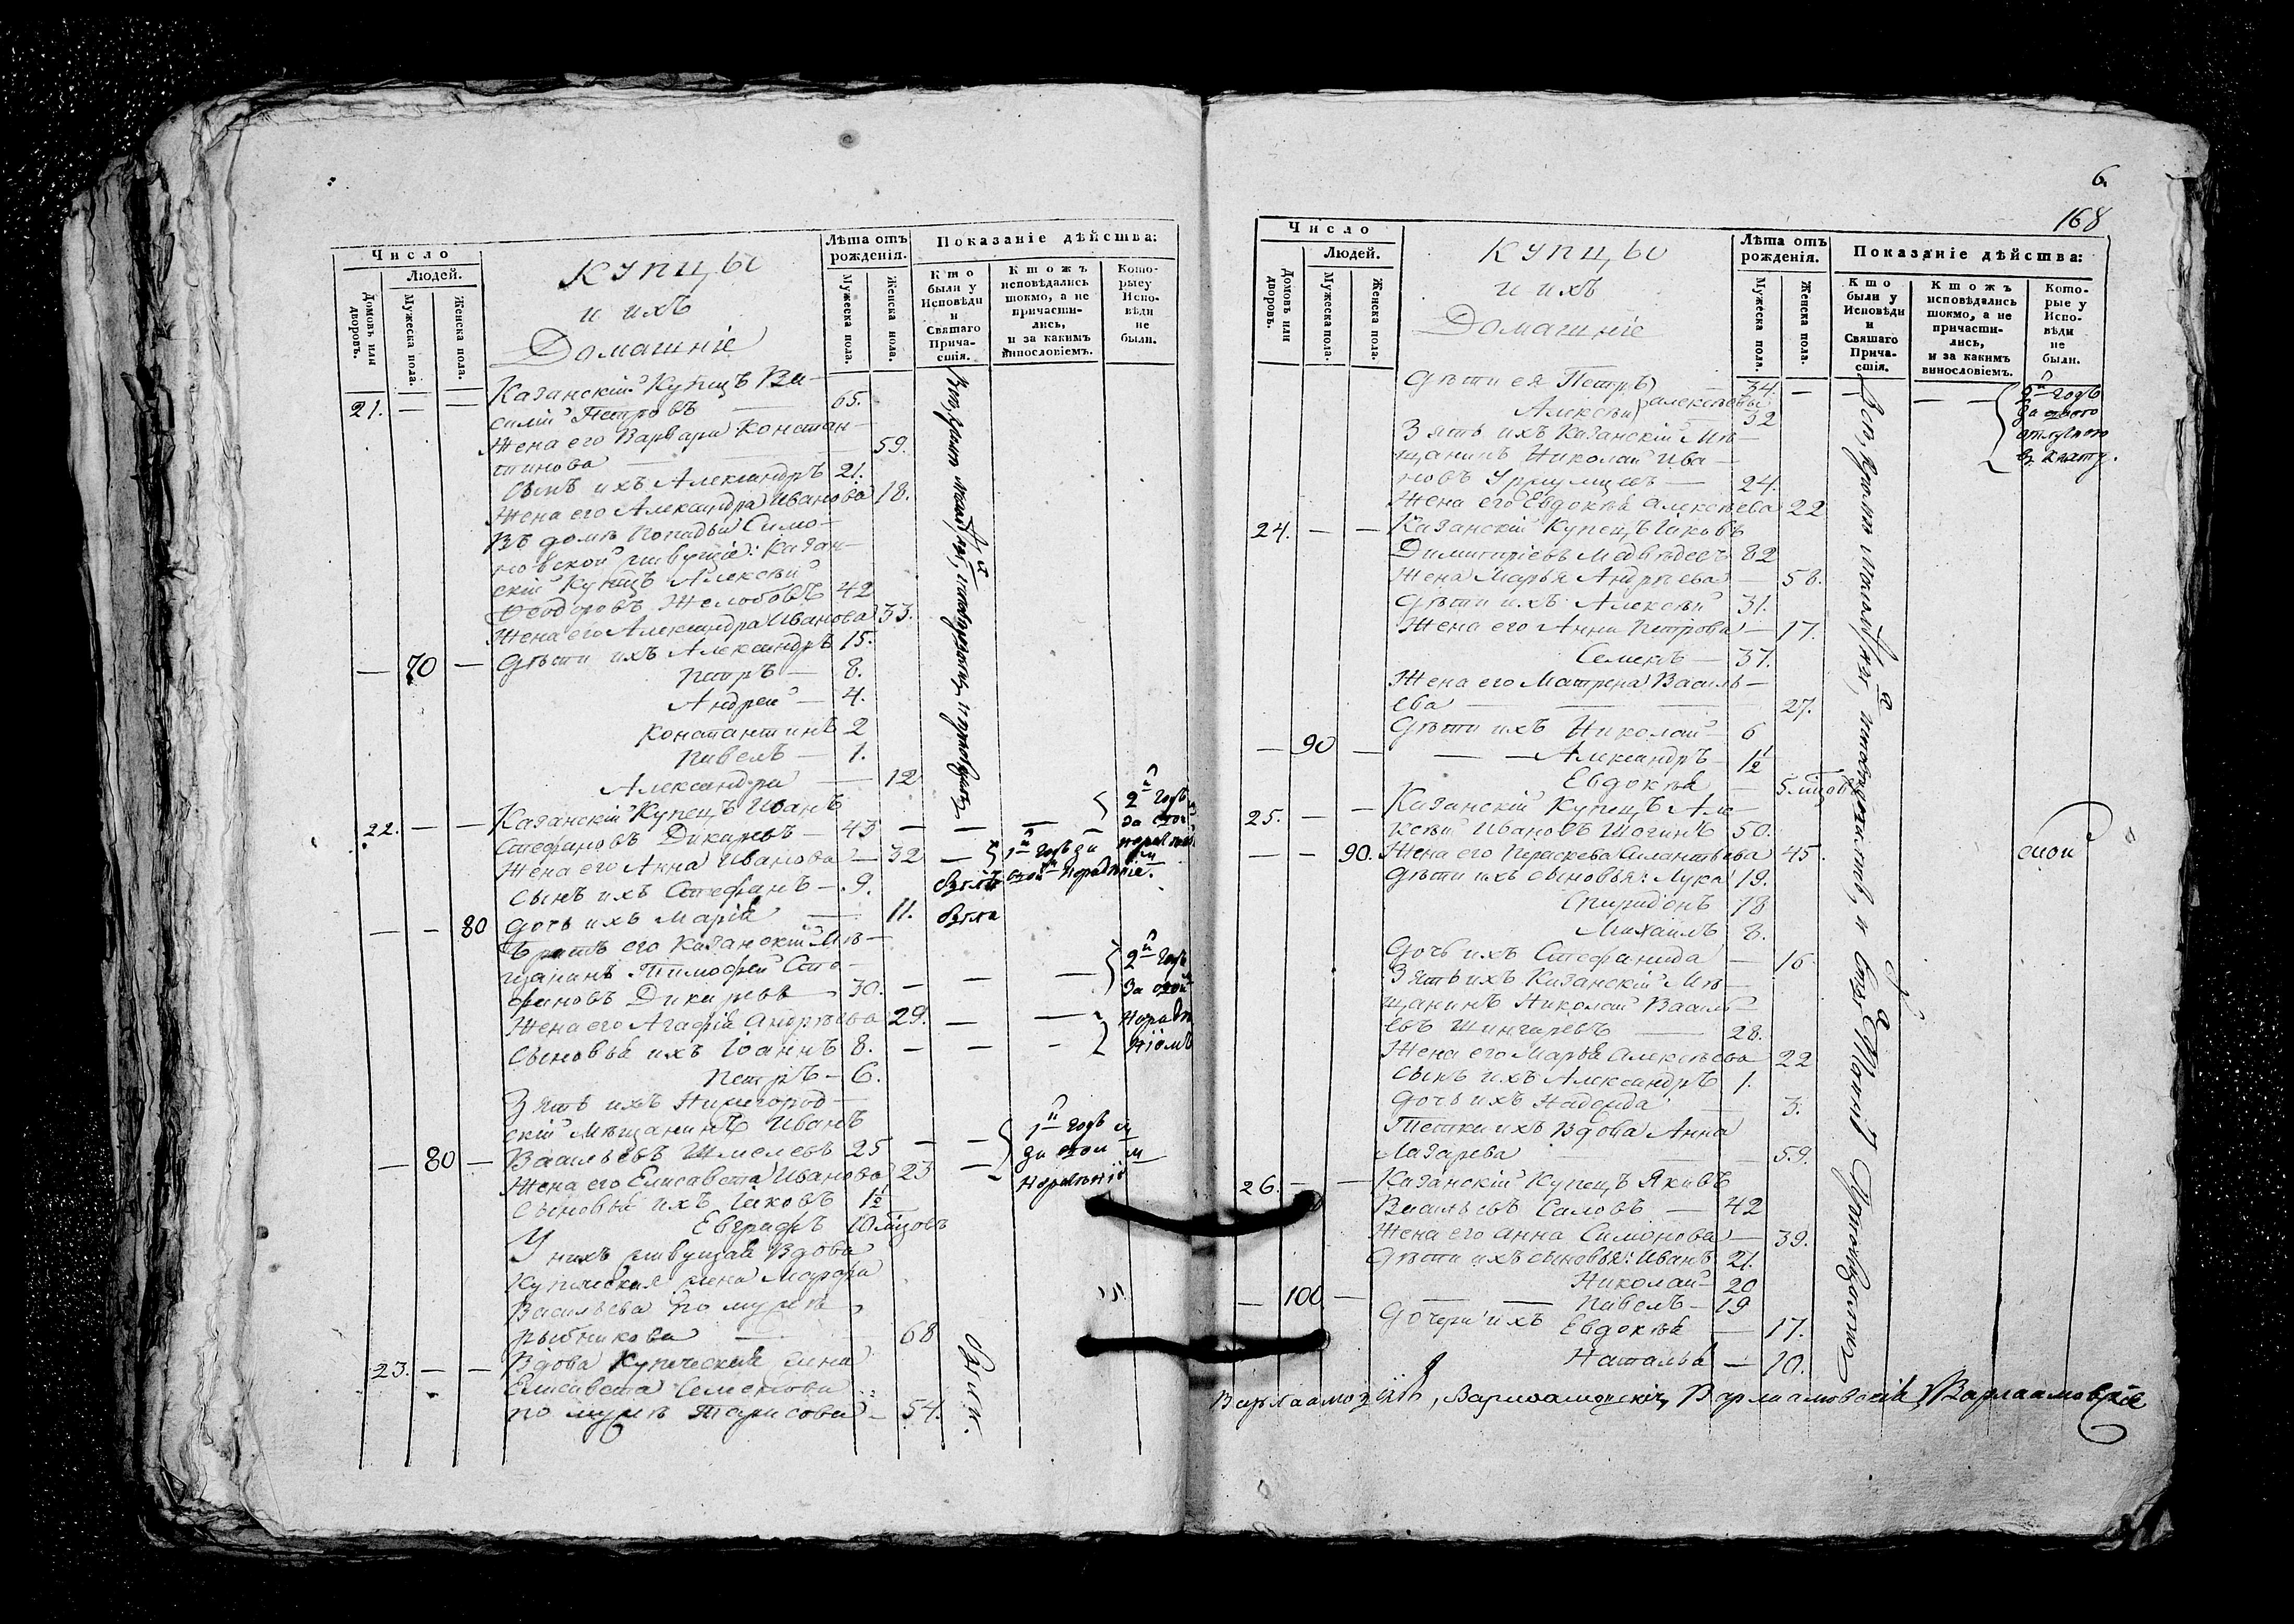 Число
Людей.
Домовъ или дворовъ.
Мужеска пола.
Женска пола.
Купцы
и ихъ
Домашніе
Лѣта отъ рожденія.
Мужеска пола.
Женска пола.
Показаніе дѣйства:
Кто были у Исповѣди и Святаго Причастія.
Ктожъ исповѣдались токмо, а не причастились, и за какимъ винословіемъ.
Которые у Исповѣди не были.
21. — — Казанскій Купецъ Ва-
силій Петровъ — 65.
Жена его Варвара Констан-
тинова — 59.
Сынъ ихъ Александръ 21.
Жена его Александра Иванова 18.
Въ домѣ Попадьи Симо-
новской живущіе: Казан-
скій Купецъ Алексѣй
Феодоровъ Желобовъ 42
Жена его Александра Иванова 33.
— 70 — Дѣти ихъ Александръ 15.
Петръ — 8.
Андрей — 4.
Константинъ 2
Павелъ — 1.
Александра — 12
22. — — Казанскій Купецъ Иванъ
Стефановъ Дикаревъ — 43 — — —
Жена его Анна Иванова — 32 —
Сынъ ихъ Стефанъ — 9.
— — 80 Дочь ихъ Марія — 11.
Братъ его Казанскій Мѣ-
щанинъ Тимофей Сте-
фановъ Дикаревъ 30. — —
Жена его Агафія Андреева 29. — —
Сыновья ихъ Іоаннъ 8. — — —
Петръ — 6.
Зять ихъ Нижегород-
скій Мѣщанинъ Иванъ
— 80 — Васильевъ Шмелевъ 25 — —
Жена его Елисавета Иванова 23 — —
Сыновья ихъ Іаковъ 1½
Евграфъ 10 мцовъ
У нихъ живущая Вдова
Купеческая жена Марфа
Васильева по мужѣ
Рыбникова — 68
23. — — Вдова Купеческая жена
Елисавета Семенова
по мужѣ Тарисова — 54.
6.
168
Число
Людей.
Домовъ или дворовъ.
Мужеска пола.
Женска пола.
Купцы
и ихъ
Домашніе
Лѣта отъ рожденія.
Мужеска пола.
Женска пола.
Показаніе дѣйства:
Кто были у Исповѣди и Святаго Причастія.
Ктожъ исповѣдались токмо, а не причастились, и за какимъ винословіемъ.
Которые у Исповѣди не были.
Дѣти ея Петръ — 34. — — — —
Алексѣй Алексѣевы 32
Зять ихъ Казанскій Мѣ-
щанинъ Николай Ива-
новъ — 24.
Жена его Евдокія Алексѣева 22
24. — — Казанскій Купецъ Іаковъ
Димитріевъ Медвѣдевъ 82
Жена Марья Андреева — 58.
Дѣти ихъ Алексѣй 31.
Жена его Анна Петрова — 17.
Семенъ — 37.
Жена его Матрена Василь-
ева — 27.
Дѣти ихъ Николай — 6
— 90 — — — Александръ — 1½
Евдокія — 5 мцовъ
25. — — Казанскій Купецъ Але-
ксѣй Ивановъ Шогинъ 50.
— — 90. Жена его Праскева Силантьева 45.
Дѣти ихъ сыновья: Лука 19.
Спиридонъ 18
Михаилъ 8.
Дочь ихъ Стефанида — 16
Зять ихъ Казанскій Мѣ-
щанинъ Николай Василь-
евъ Шингаревъ — 28.
Жена его Марья Алексѣева 22
Сынъ ихъ Александръ 1.
Дочь ихъ Надежда — 3.
Тетка ихъ Вдова Анна
Лазарева — 59.
26. — — Казанскій Купецъ Яковъ
Васильевъ Саловъ — 42
Жена его Анна Симонова — 39.
Дѣти ихъ сыновья: Иванъ 21.
Николай — 20
— 100 — Павелъ — 19
Дочери ихъ Евдокія — 17.
Наталья — 10.